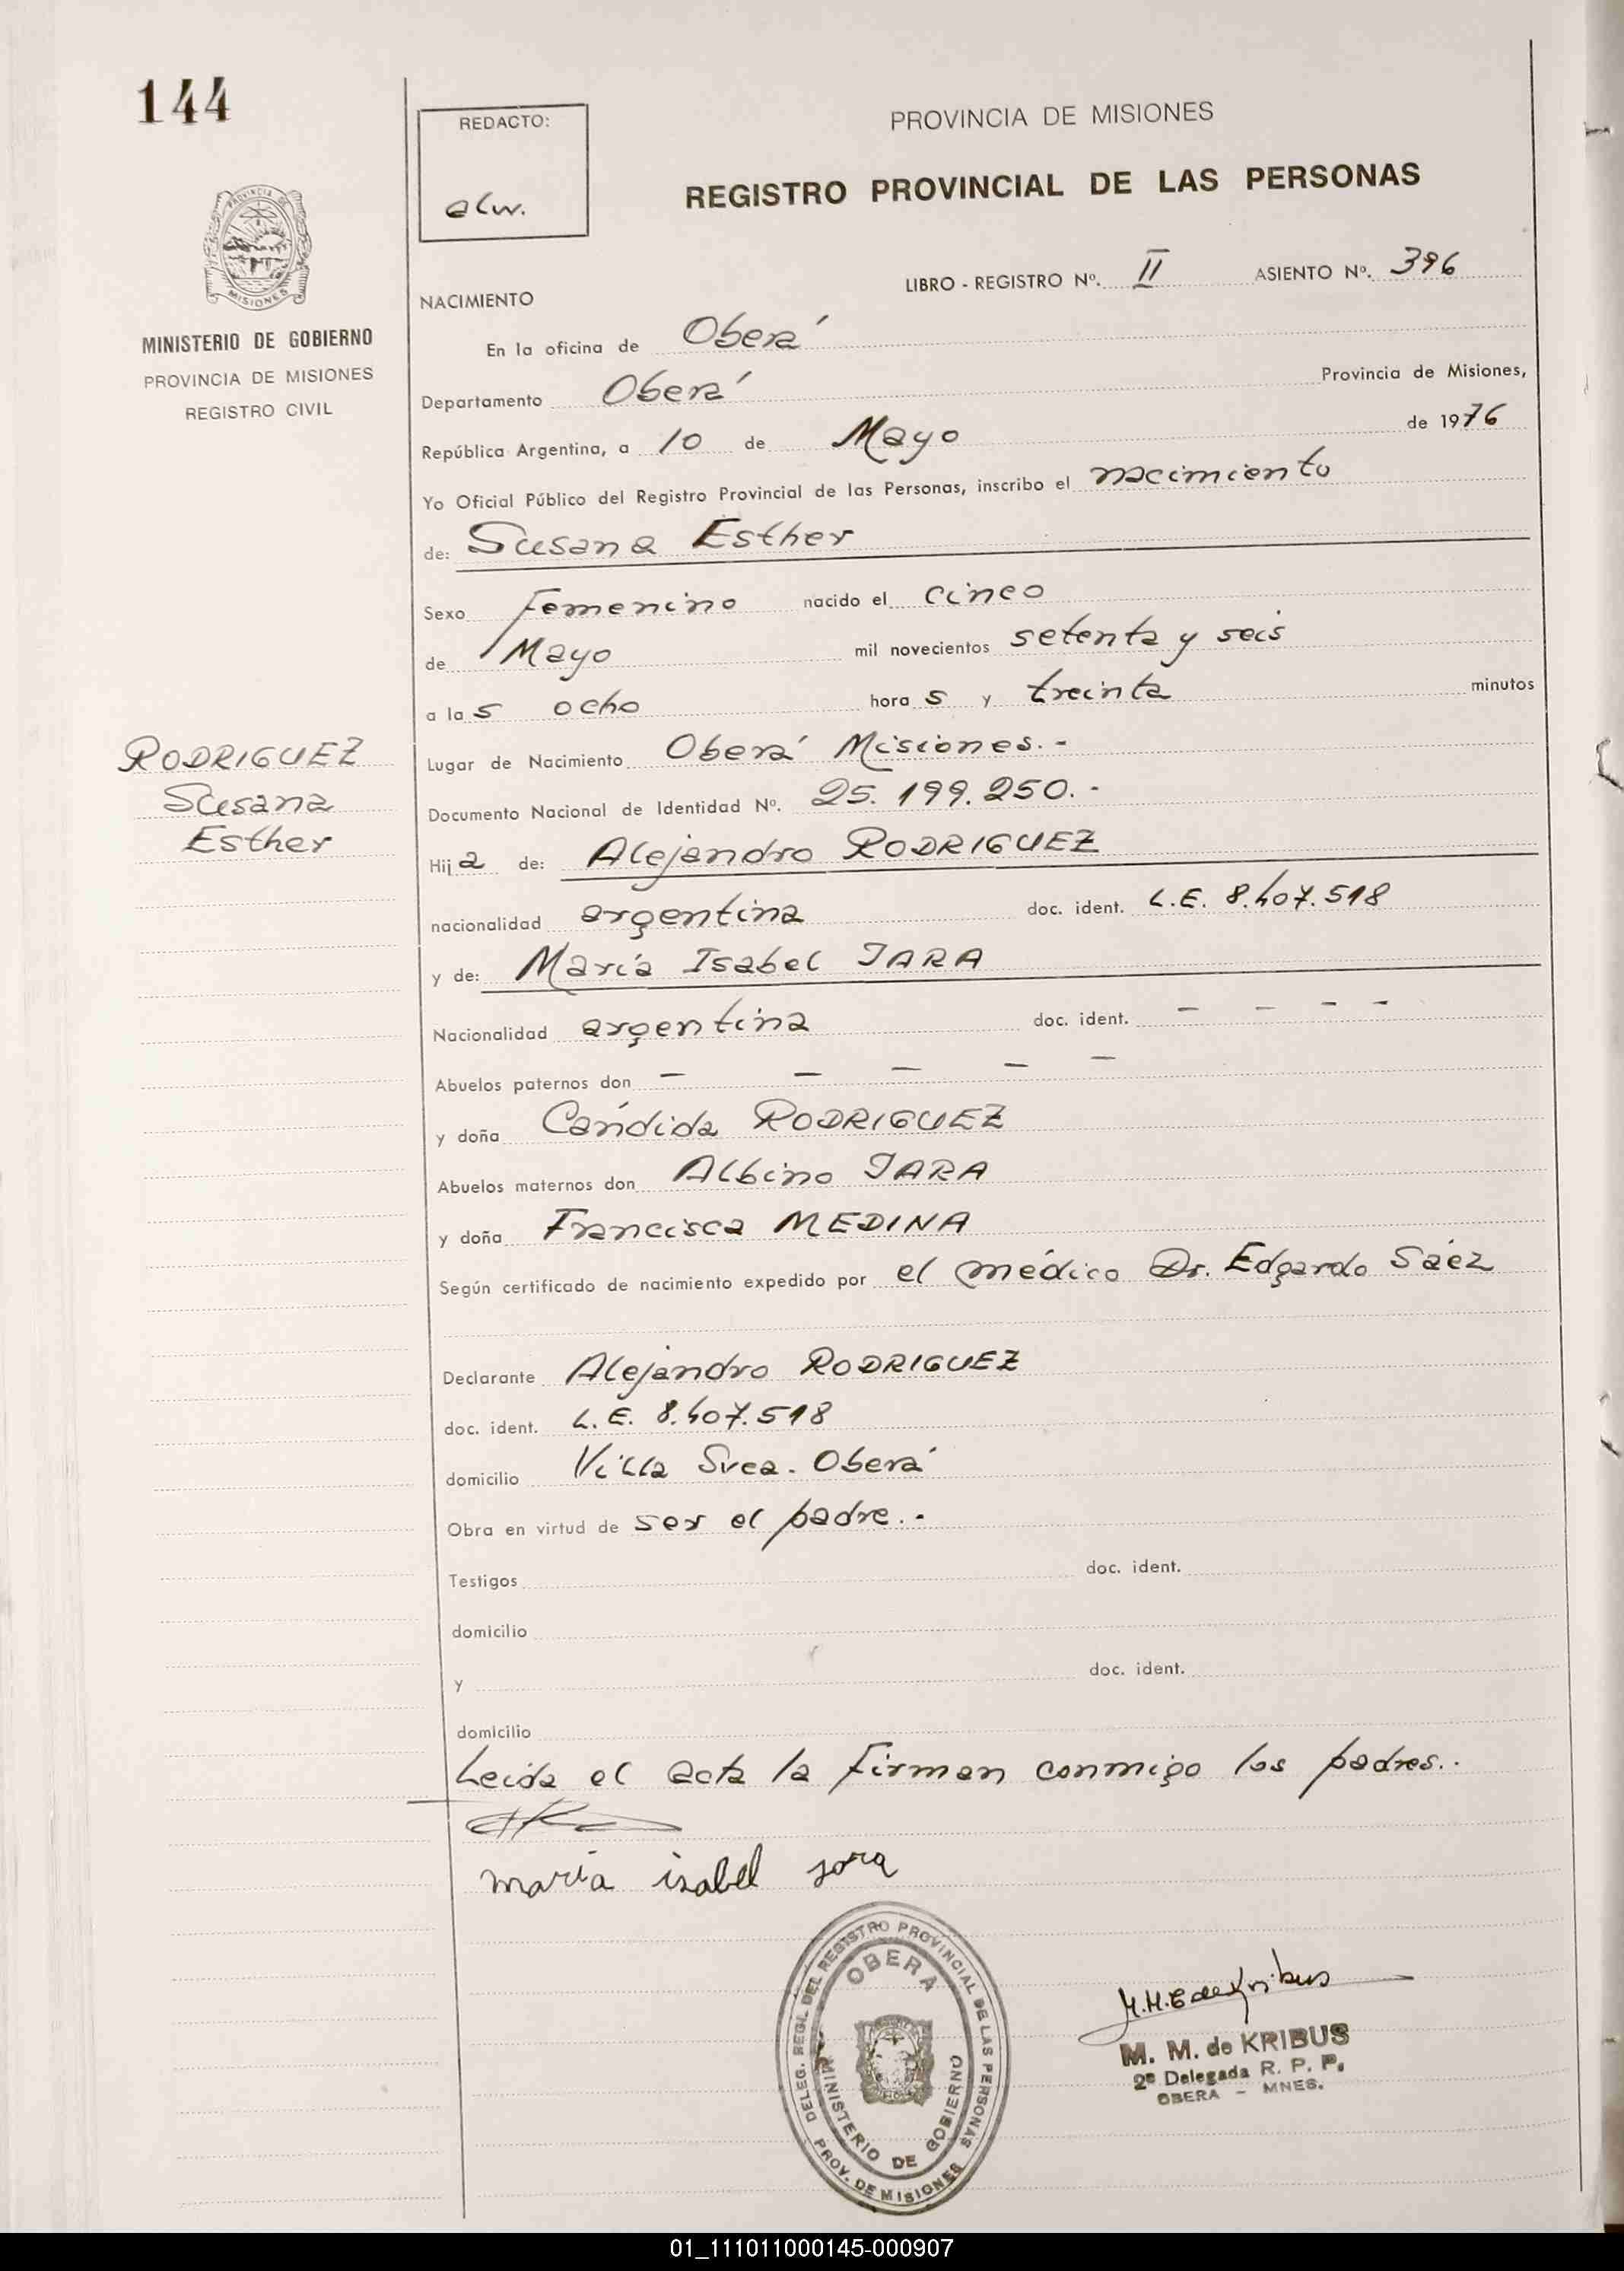 144
REDACTO:
alw.
PROVINCIA DE MISIONES
REGISTRO PROVINCIAL DE LAS PERSONAS
PROVINCIA DE
MISIONES
MINISTERIO DE GOBIERNO
PROVINCIA DE MISIONES
REGISTRO CIVIL
LIBRO - REGISTRO Nº. II ASIENTO Nº. 396
NACIMIENTO
En la oficina de Oberá
Departamento Oberá Provincia de Misiones,
República Argentina, a 10 de Mayo de 1976
Yo Oficial Público del Registro Provincial de las Personas, inscribo el nacimiento
de: Susana Esther
Sexo Femenino nacido el cinco
de Mayo mil novecientos setenta y seis
a las ocho horas y treinta minutos
RODRIGUEZ
Susana
Esther
Lugar de Nacimiento Oberá Misiones.-
Documento Nacional de Identidad Nº. 25.199.250.-
Hija de: Alejandro RODRIGUEZ
nacionalidad argentina doc. ident. L.E. 8.407.518
y de: María Isabel JARA
Nacionalidad argentina doc. ident. - - - -
Abuelos paternos don - - - - -
y doña Cándida RODRIGUEZ
Abuelos maternos don Albino JARA
y doña Francisca MEDINA
Según certificado de nacimiento expedido por el médico Dr. Edgardo Sáez
Declarante Alejandro RODRIGUEZ
doc. ident. L.E. 8.407.518
domicilio Villa Svea. Oberá
Obra en virtud de ser el padre.-
Testigos doc. ident.
domicilio
y doc. ident.
domicilio
Leída el acta la firman conmigo los padres.-
maria isabel jara
DELEG. REGL. DEL REGISTRO PROVINCIAL DE LAS PERSONAS
OBERA
MINISTERIO DE GOBIERNO
PROV. DE MISIONES
M.M.E de Kribus
M. M. de KRIBUS
2ª Delegada R. P. P.
OBERA - MNES.
01_111011000145-000907